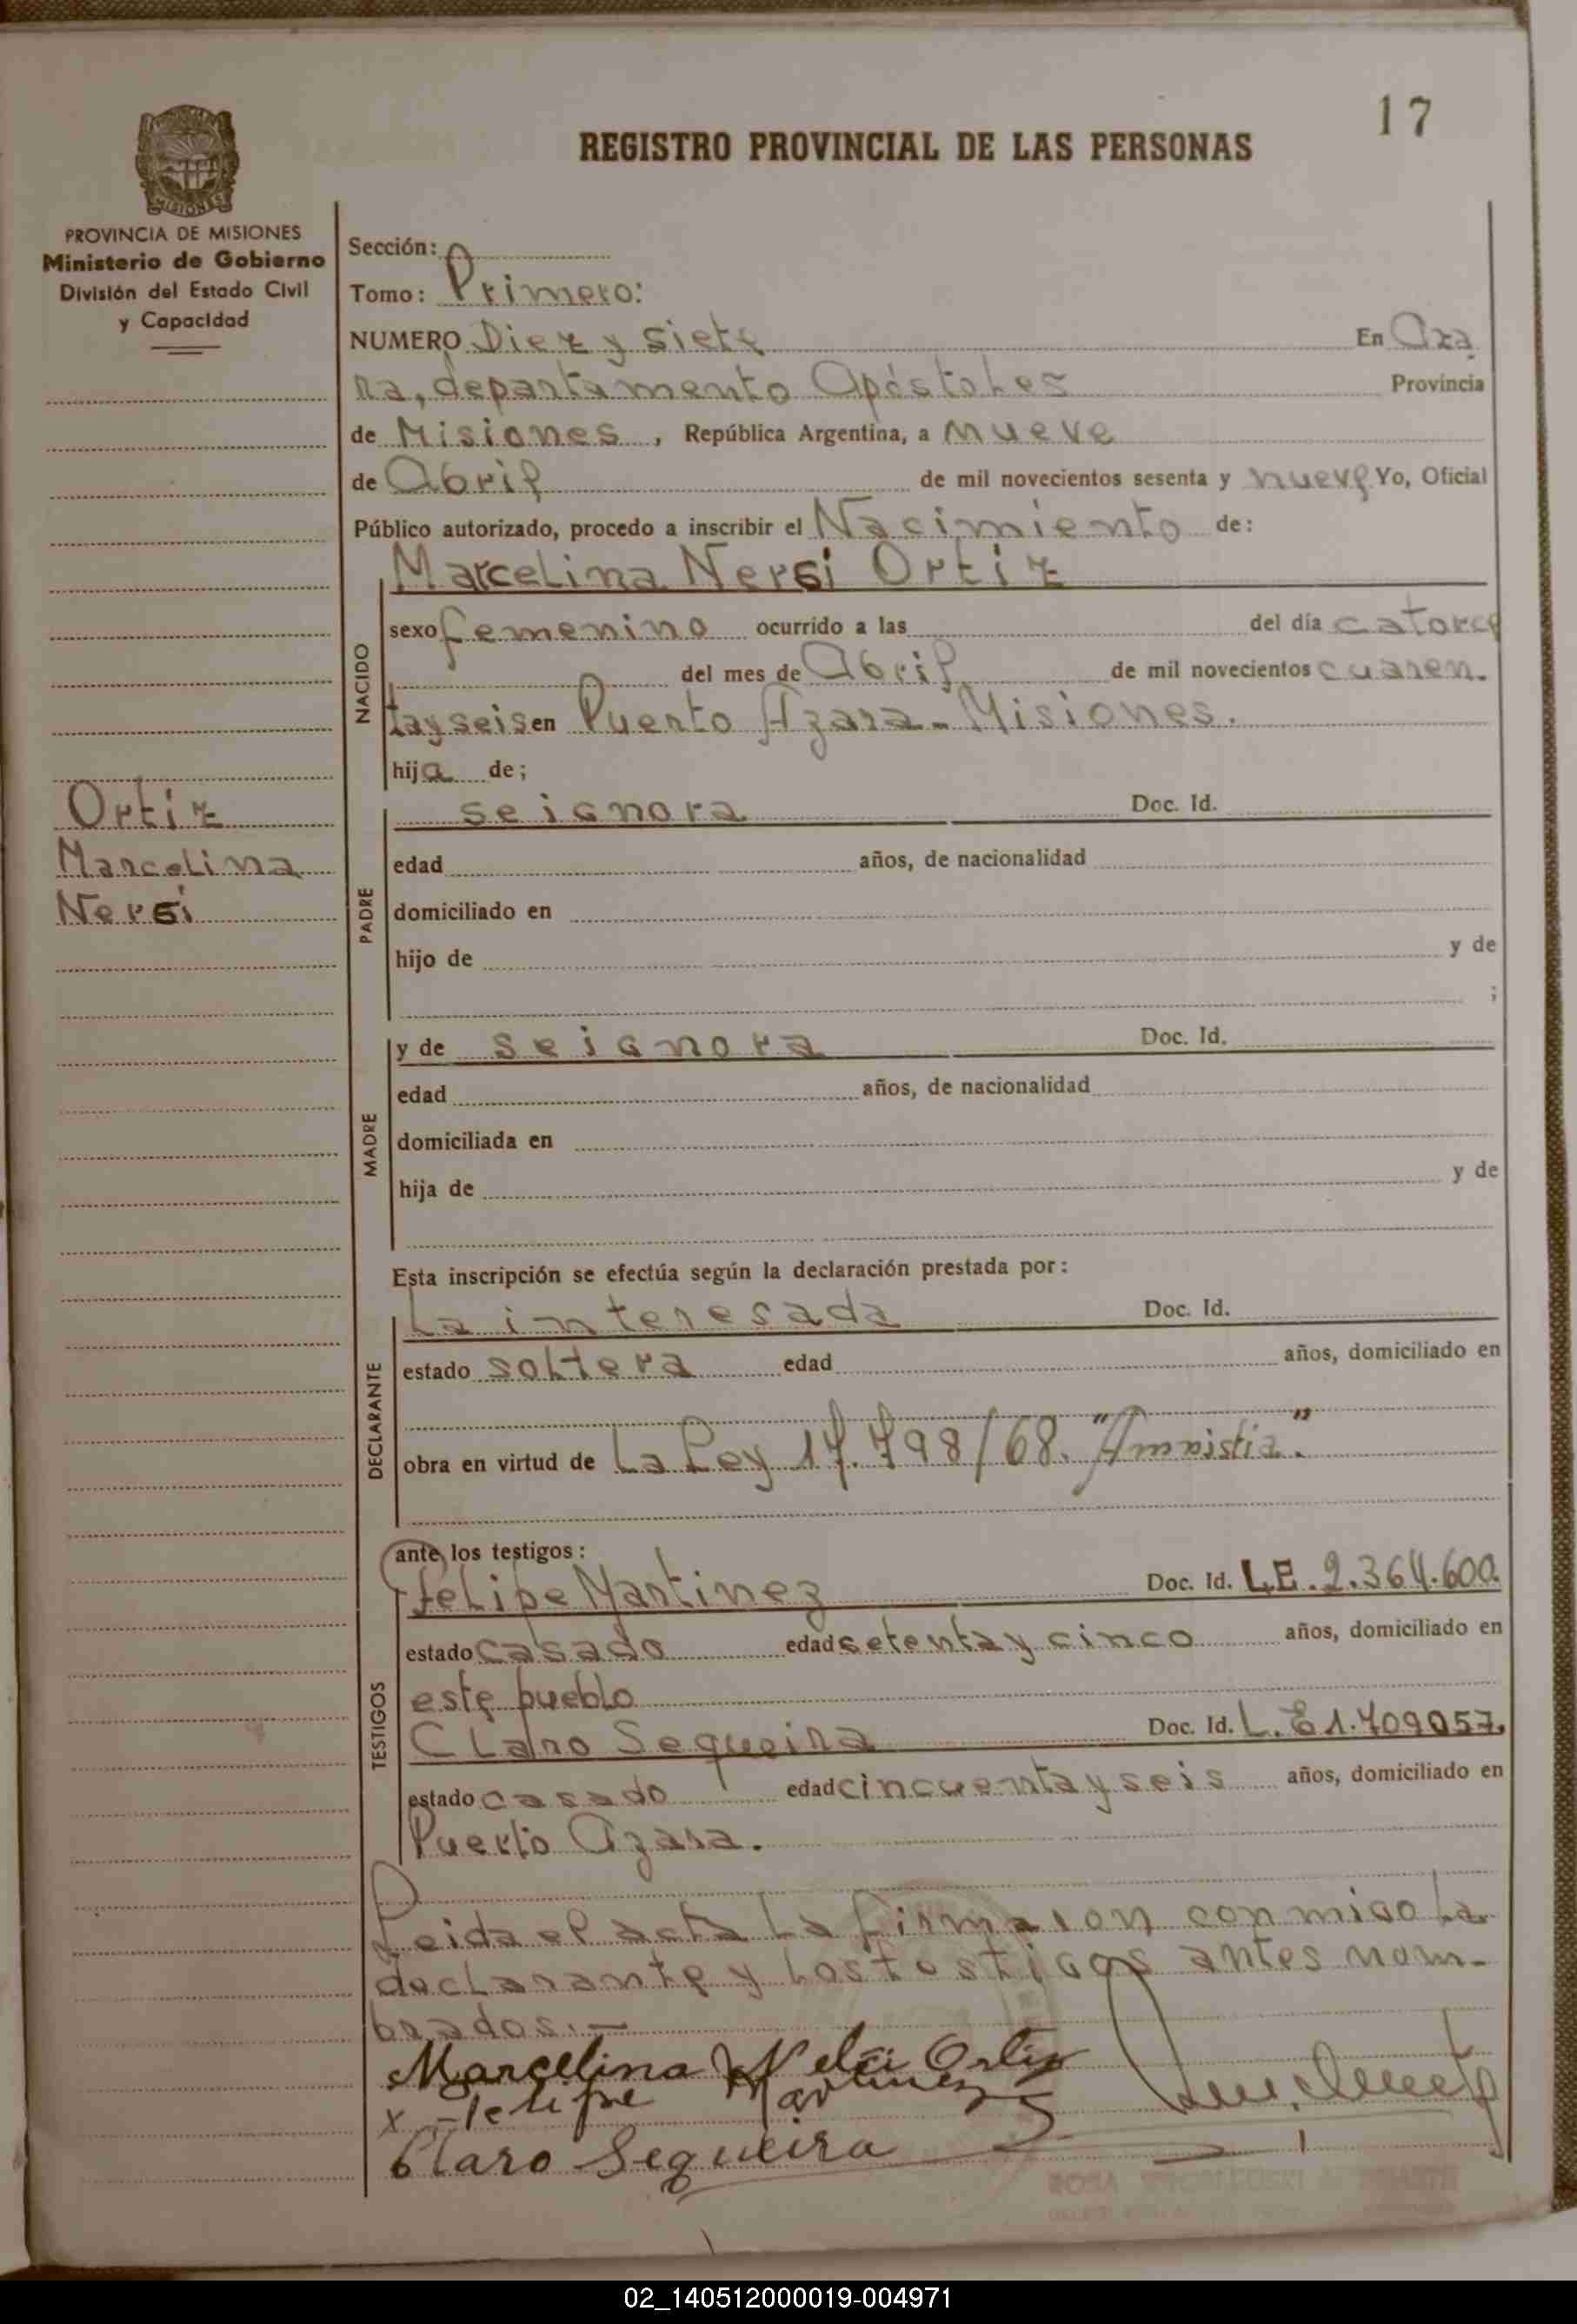 17
REGISTRO PROVINCIAL DE LAS PERSONAS
MISIONES
PROVINCIA DE MISIONES
Ministerio de Gobierno
División del Estado Civil
y Capacidad
Sección:
Tomo: Primero:
NUMERO Diez y siete En Aza
ra, departamento Apóstoles Provincia
de Misiones, República Argentina, a Nueve
de Abril de mil novecientos sesenta y nueve Yo, Oficial
Público autorizado, procedo a inscribir el Nacimiento de:
Marcelina Nersi Ortiz
NACIDO
sexo femenino ocurrido a las del día catorce
del mes de Abril de mil novecientos cuaren.
tay seis en Puerto Azara - Misiones.
hija de;
Ortiz
Marcelina
Nersi
PADRE
se ignora Doc. Id.
edad años, de nacionalidad
domiciliado en
hijo de y de
;
MADRE
y de se ignora Doc. Id.
edad años, de nacionalidad
domiciliada en
hija de y de
Esta inscripción se efectúa según la declaración prestada por:
DECLARANTE
La interesada Doc. Id.
estado soltera edad años, domiciliado en
obra en virtud de La Ley 17.798/68. "Amnistia".
ante los testigos:
TESTIGOS
Felipe Martinez Doc. Id. L.E. 2.364.600.
estado casado edad setenta y cinco años, domiciliado en
este pueblo
Claro Sequeira Doc. Id. L. E 1.709057.
estado casado edad cincuenta y seis años, domiciliado en
Puerto Azara.
Leida el acta la firmaron conmigo la
declarante y los testigos antes nom-
brados.-
Marcelina Ortiz
x Felipe Martinez
Claro Sequeira
ROSA
02_140512000019-004971